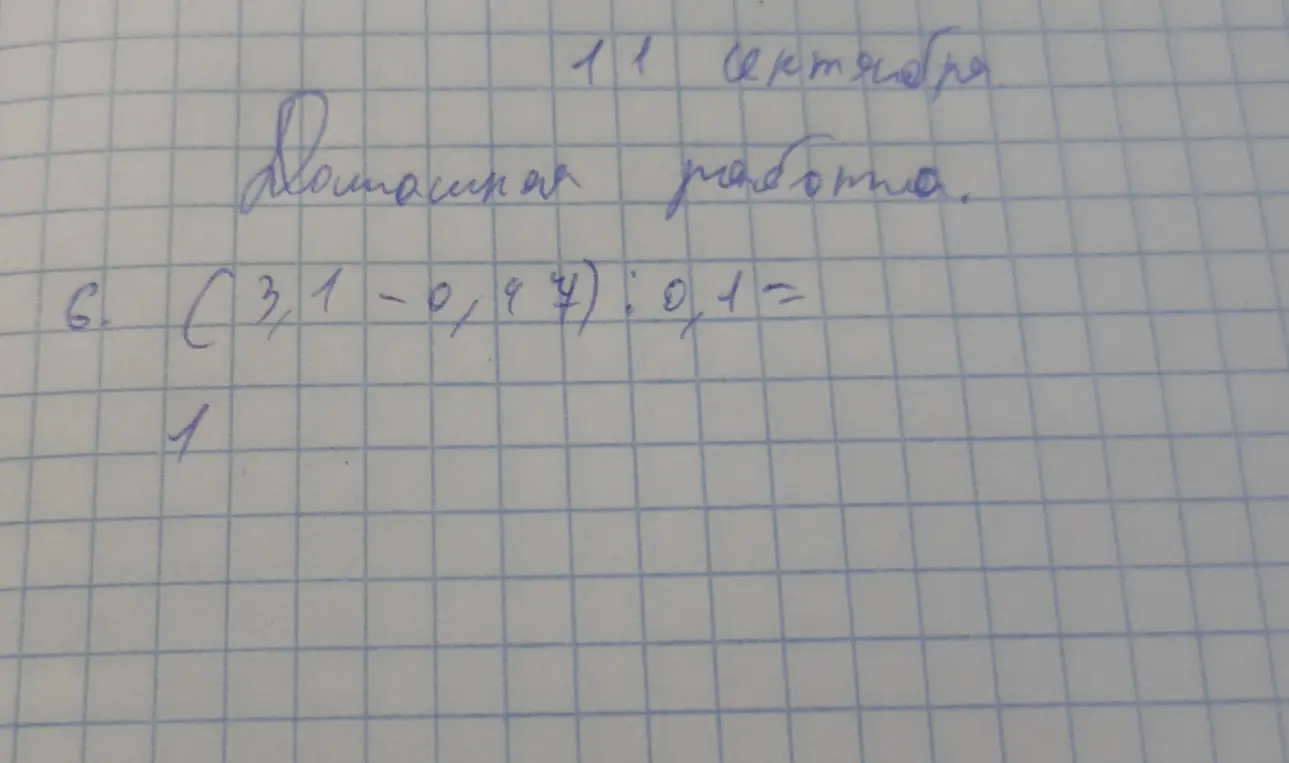 11 сентября
Домашняя работа.
6. (3,1 - 0,97) : 0,1 =
1